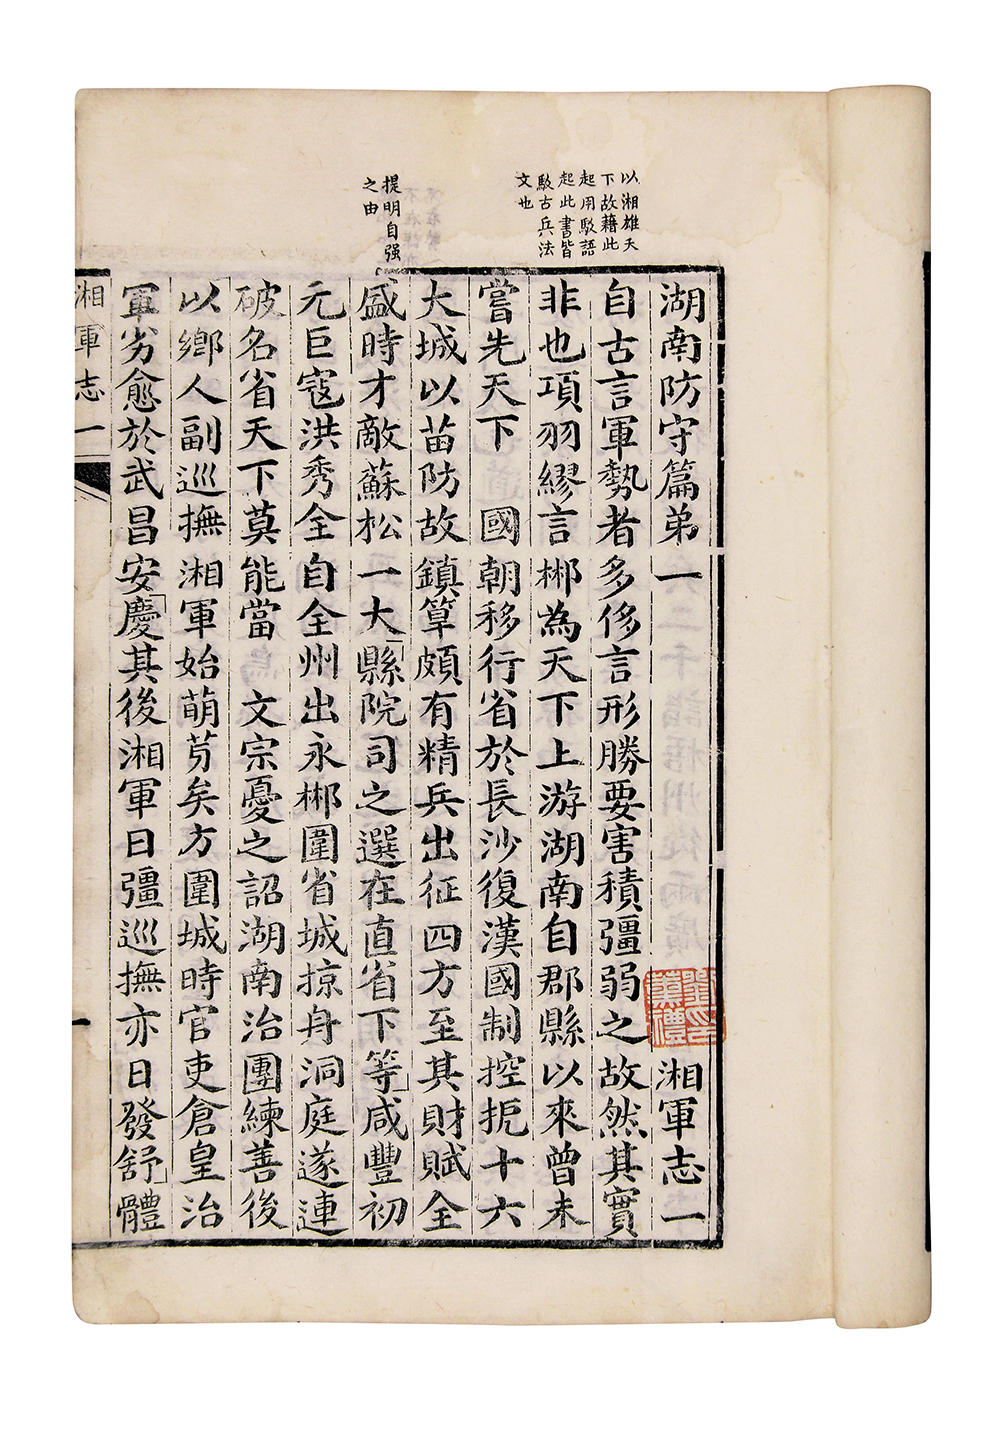 以湘雄天
下故藉此
起用駁語
起此書皆
駁古兵法
文也
提明自强
之由
湖南防守篇弟一 湘軍志一
自古言軍勢者多侈言形勝要害積彊弱之故然其實
非也項羽繆言郴為天下上游湖南自郡縣以來曾未
嘗先天下 國朝移行省於長沙復漢國制控扼十六
大城以苗防故鎮筸頗有精兵出征四方至其財賦全
盛時才敵蘇松一大縣院司之選在直省下等咸豐初
元巨寇洪秀全自全州出永郴圍省城掠舟洞庭遂連
破名省天下莫能當 文宗憂之詔湖南治團練善後
以鄉人副巡撫湘軍始萌芽矣方圍城時官吏倉皇治
軍劣愈於武昌安慶其後湘軍日彊巡撫亦日發舒體
湘軍志一